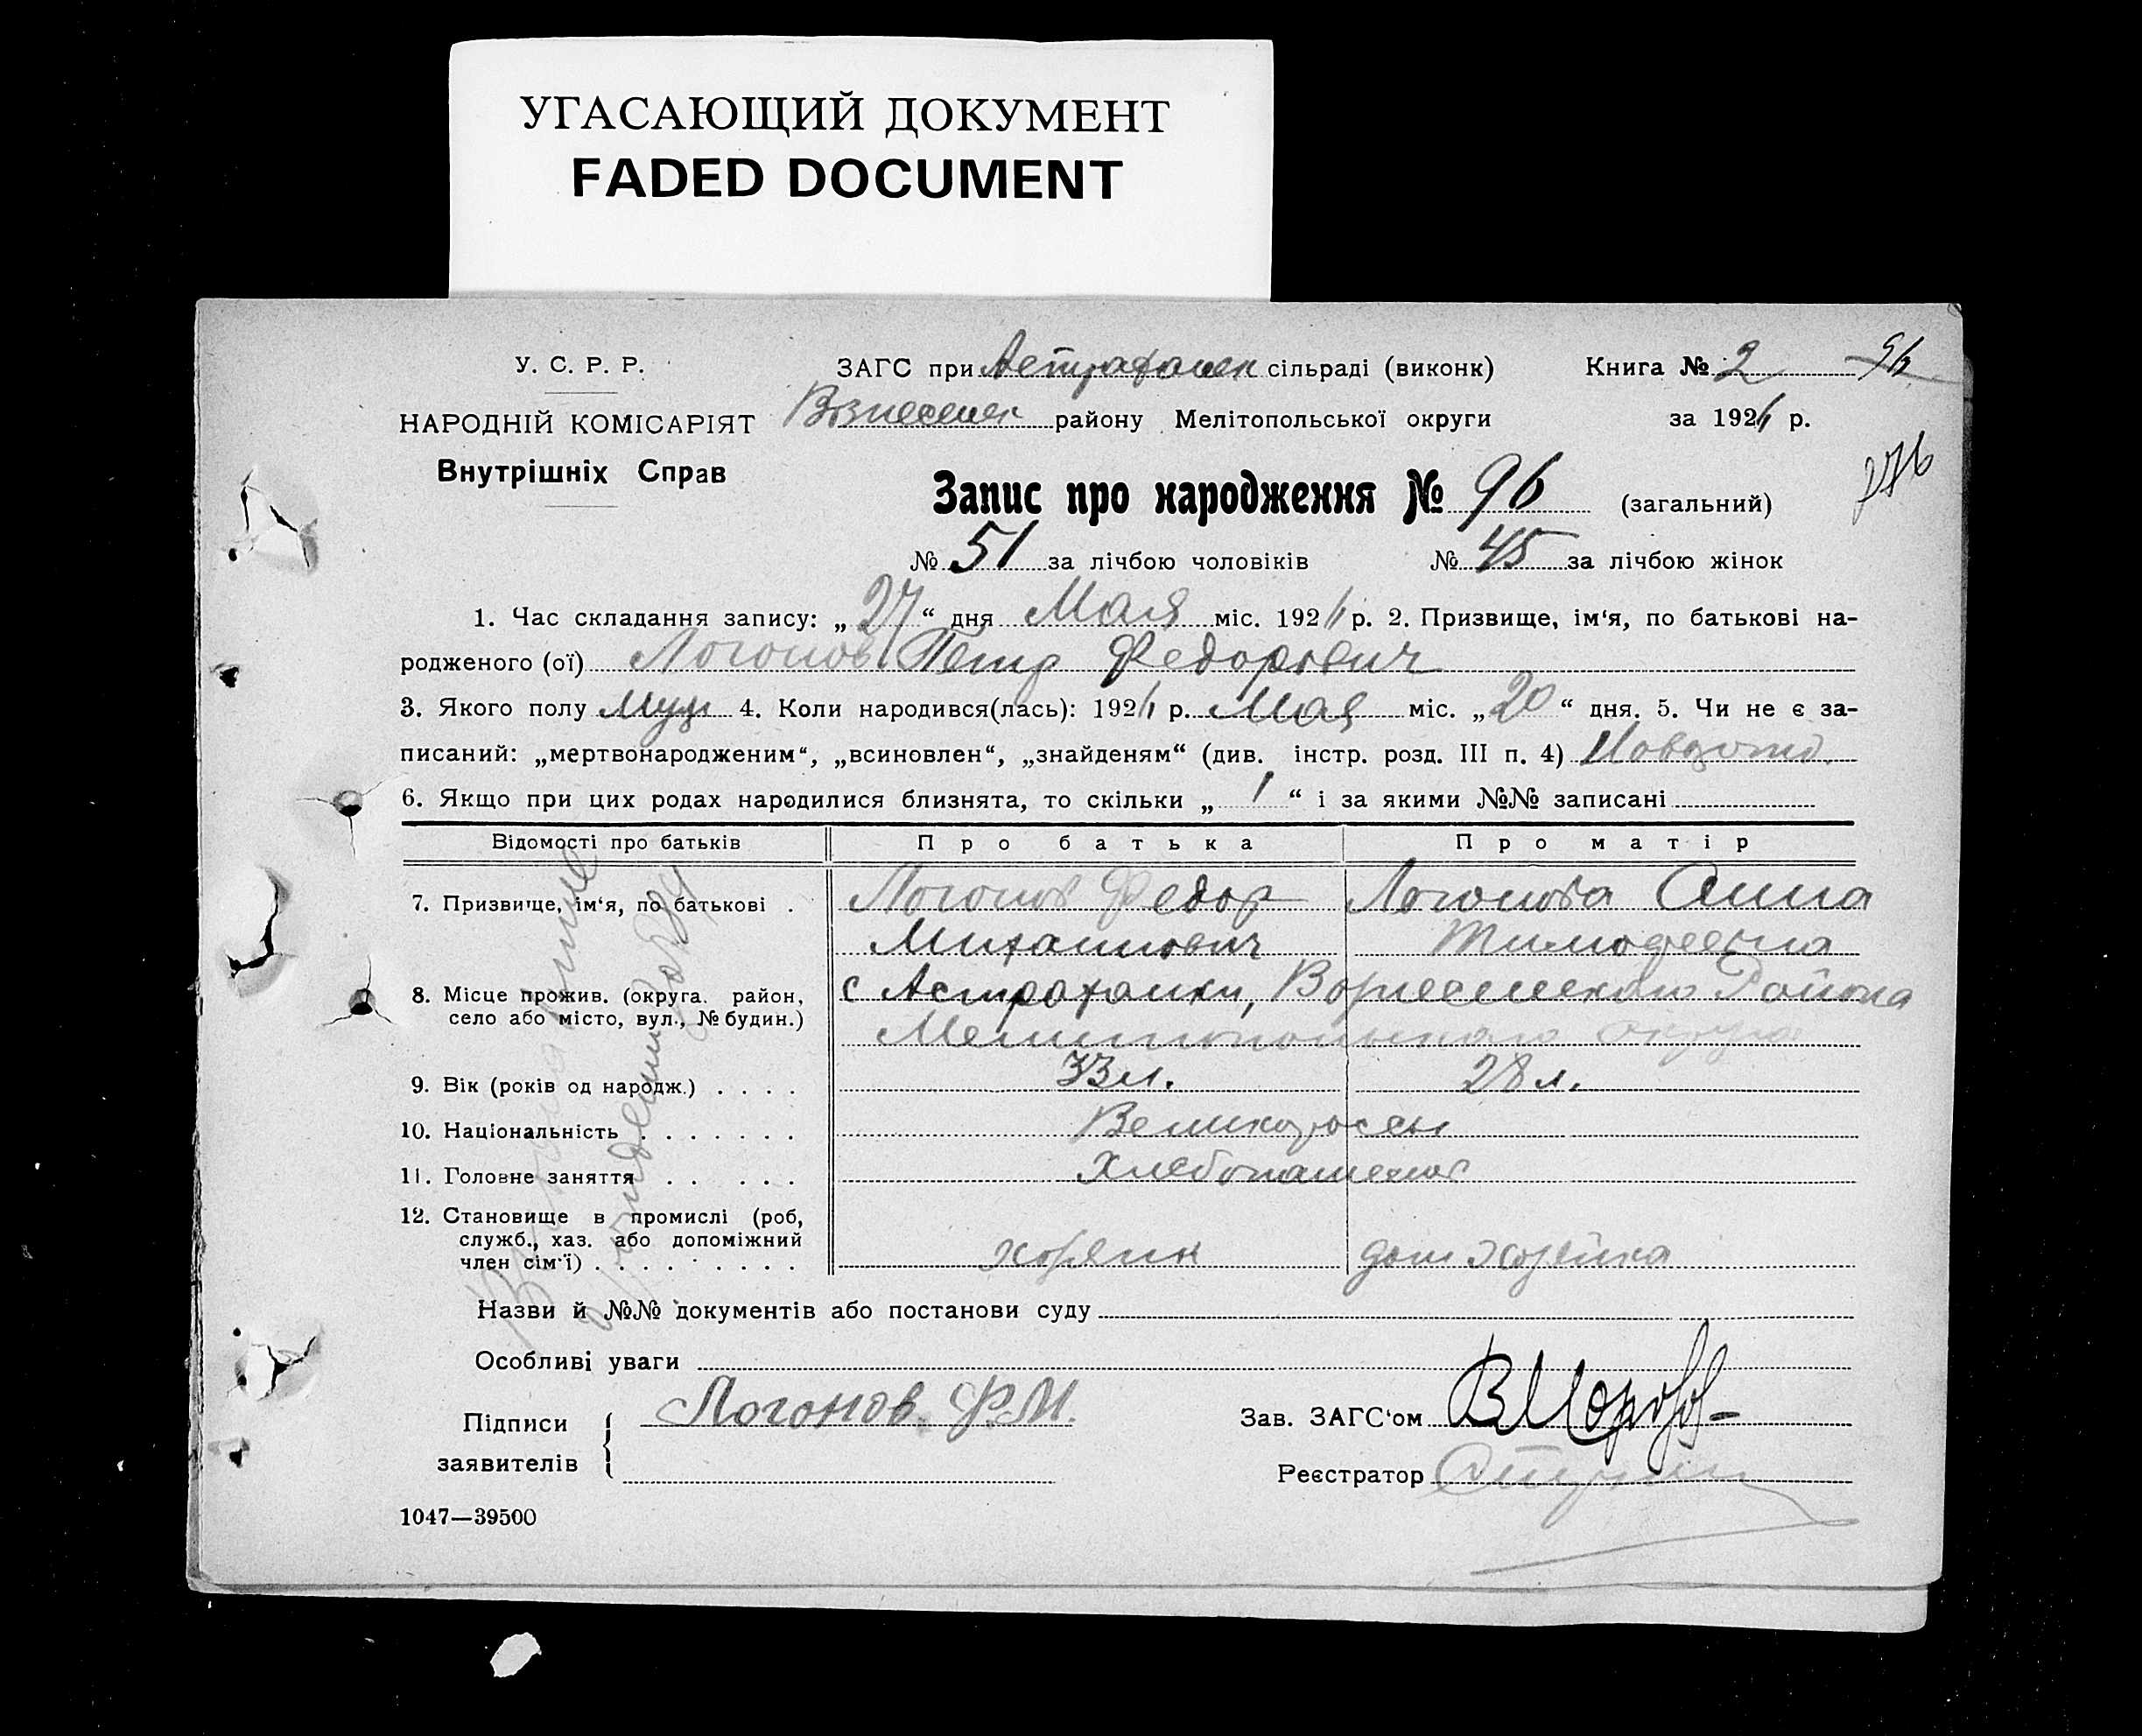 УГАСАЮЩИЙ ДОКУМЕНТ
FADED DOCUMENT
У. С. Р. Р.
НАРОДНІЙ КОМІСАРІЯТ
Внутрішніх Справ
ЗАГС при Астрахонск сільраді (виконк)
Вознесенск району Мелітопольської округи
Книга № 2
96
за 192 р.
Запис про народження № 96 (загальний)
№ 51 за лічбою чоловіків № 45 за лічбою жінок
1. Час складання запису: „27“ дня Мая міс. 192 р. 2. Призвище, ім‘я, по батькові на-
родженого (ої) Логонов Петр Федорович
3. Якого полу Муж 4. Коли народився(лась): 192 р. Мая міс. „20“ дня. 5. Чи не є за-
писаний: „мертвонародженим“, „всиновлен“, „знайденям“ (див. інстр. розд. III п. 4)
6. Якщо при цих родах народилися близнята, то скільки „1“ і за якими №№ записані
Відомості про батьків Про батька Про матір
7. Призвище, ім‘я, по батькові . Логонов Федор Логонова Анна
Михаилович Тимофеевна
8. Місце прожив. (округа. район, с Астраханки, Вознесенского Района
село або місто, вул., № будин.)
Мелитопольского округа
9. Вік (років од народж.) . . . . 33 л. 28 л.
10. Національність . . . . . . . Великоросы
11. Головне заняття . . . . . Хлебопашество
12. Становище в промислі (роб,
служб., хаз. або допоміжний
член сім‘ї) . . . . . . . . . хозяин дом хозяйка
Назви й №№ документів або постанови суду
Особливі уваги
Підписи
заявителів
Логонов. Ф.М.
Зав. ЗАГС‘ом ВМорозов
Реєстратор
1047—39500